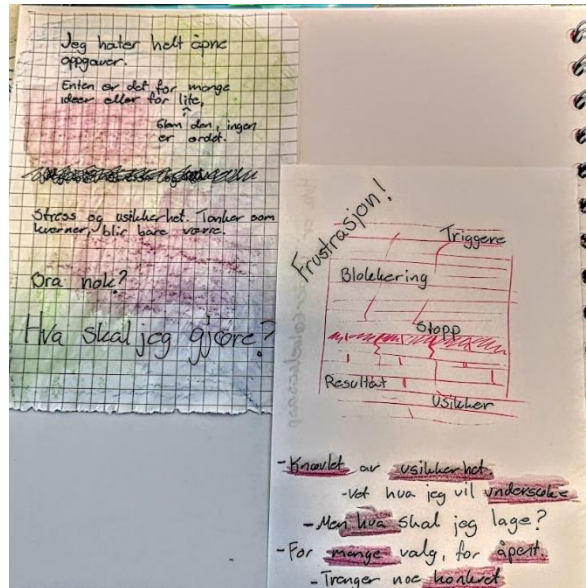 Jeg hater helt åpne
oppgaver.
Enten er det for mange
ideer eller for lite,
Glem den, ingen
er ordet.
Stress og usikkerhet. Tanker som
kverner, blir bare værre.
Bra nok?
Hva skal jeg gjøre?
Frustrasjon!
Triggere
Blokkering
Stopp
Resultat
Usikker
- Knavlet av usikkerhet.
- Vet hva jeg vil undersøke
- Men hva skal jeg lage?
- For mange valg, for åpent.
- Trenger noe konkret.